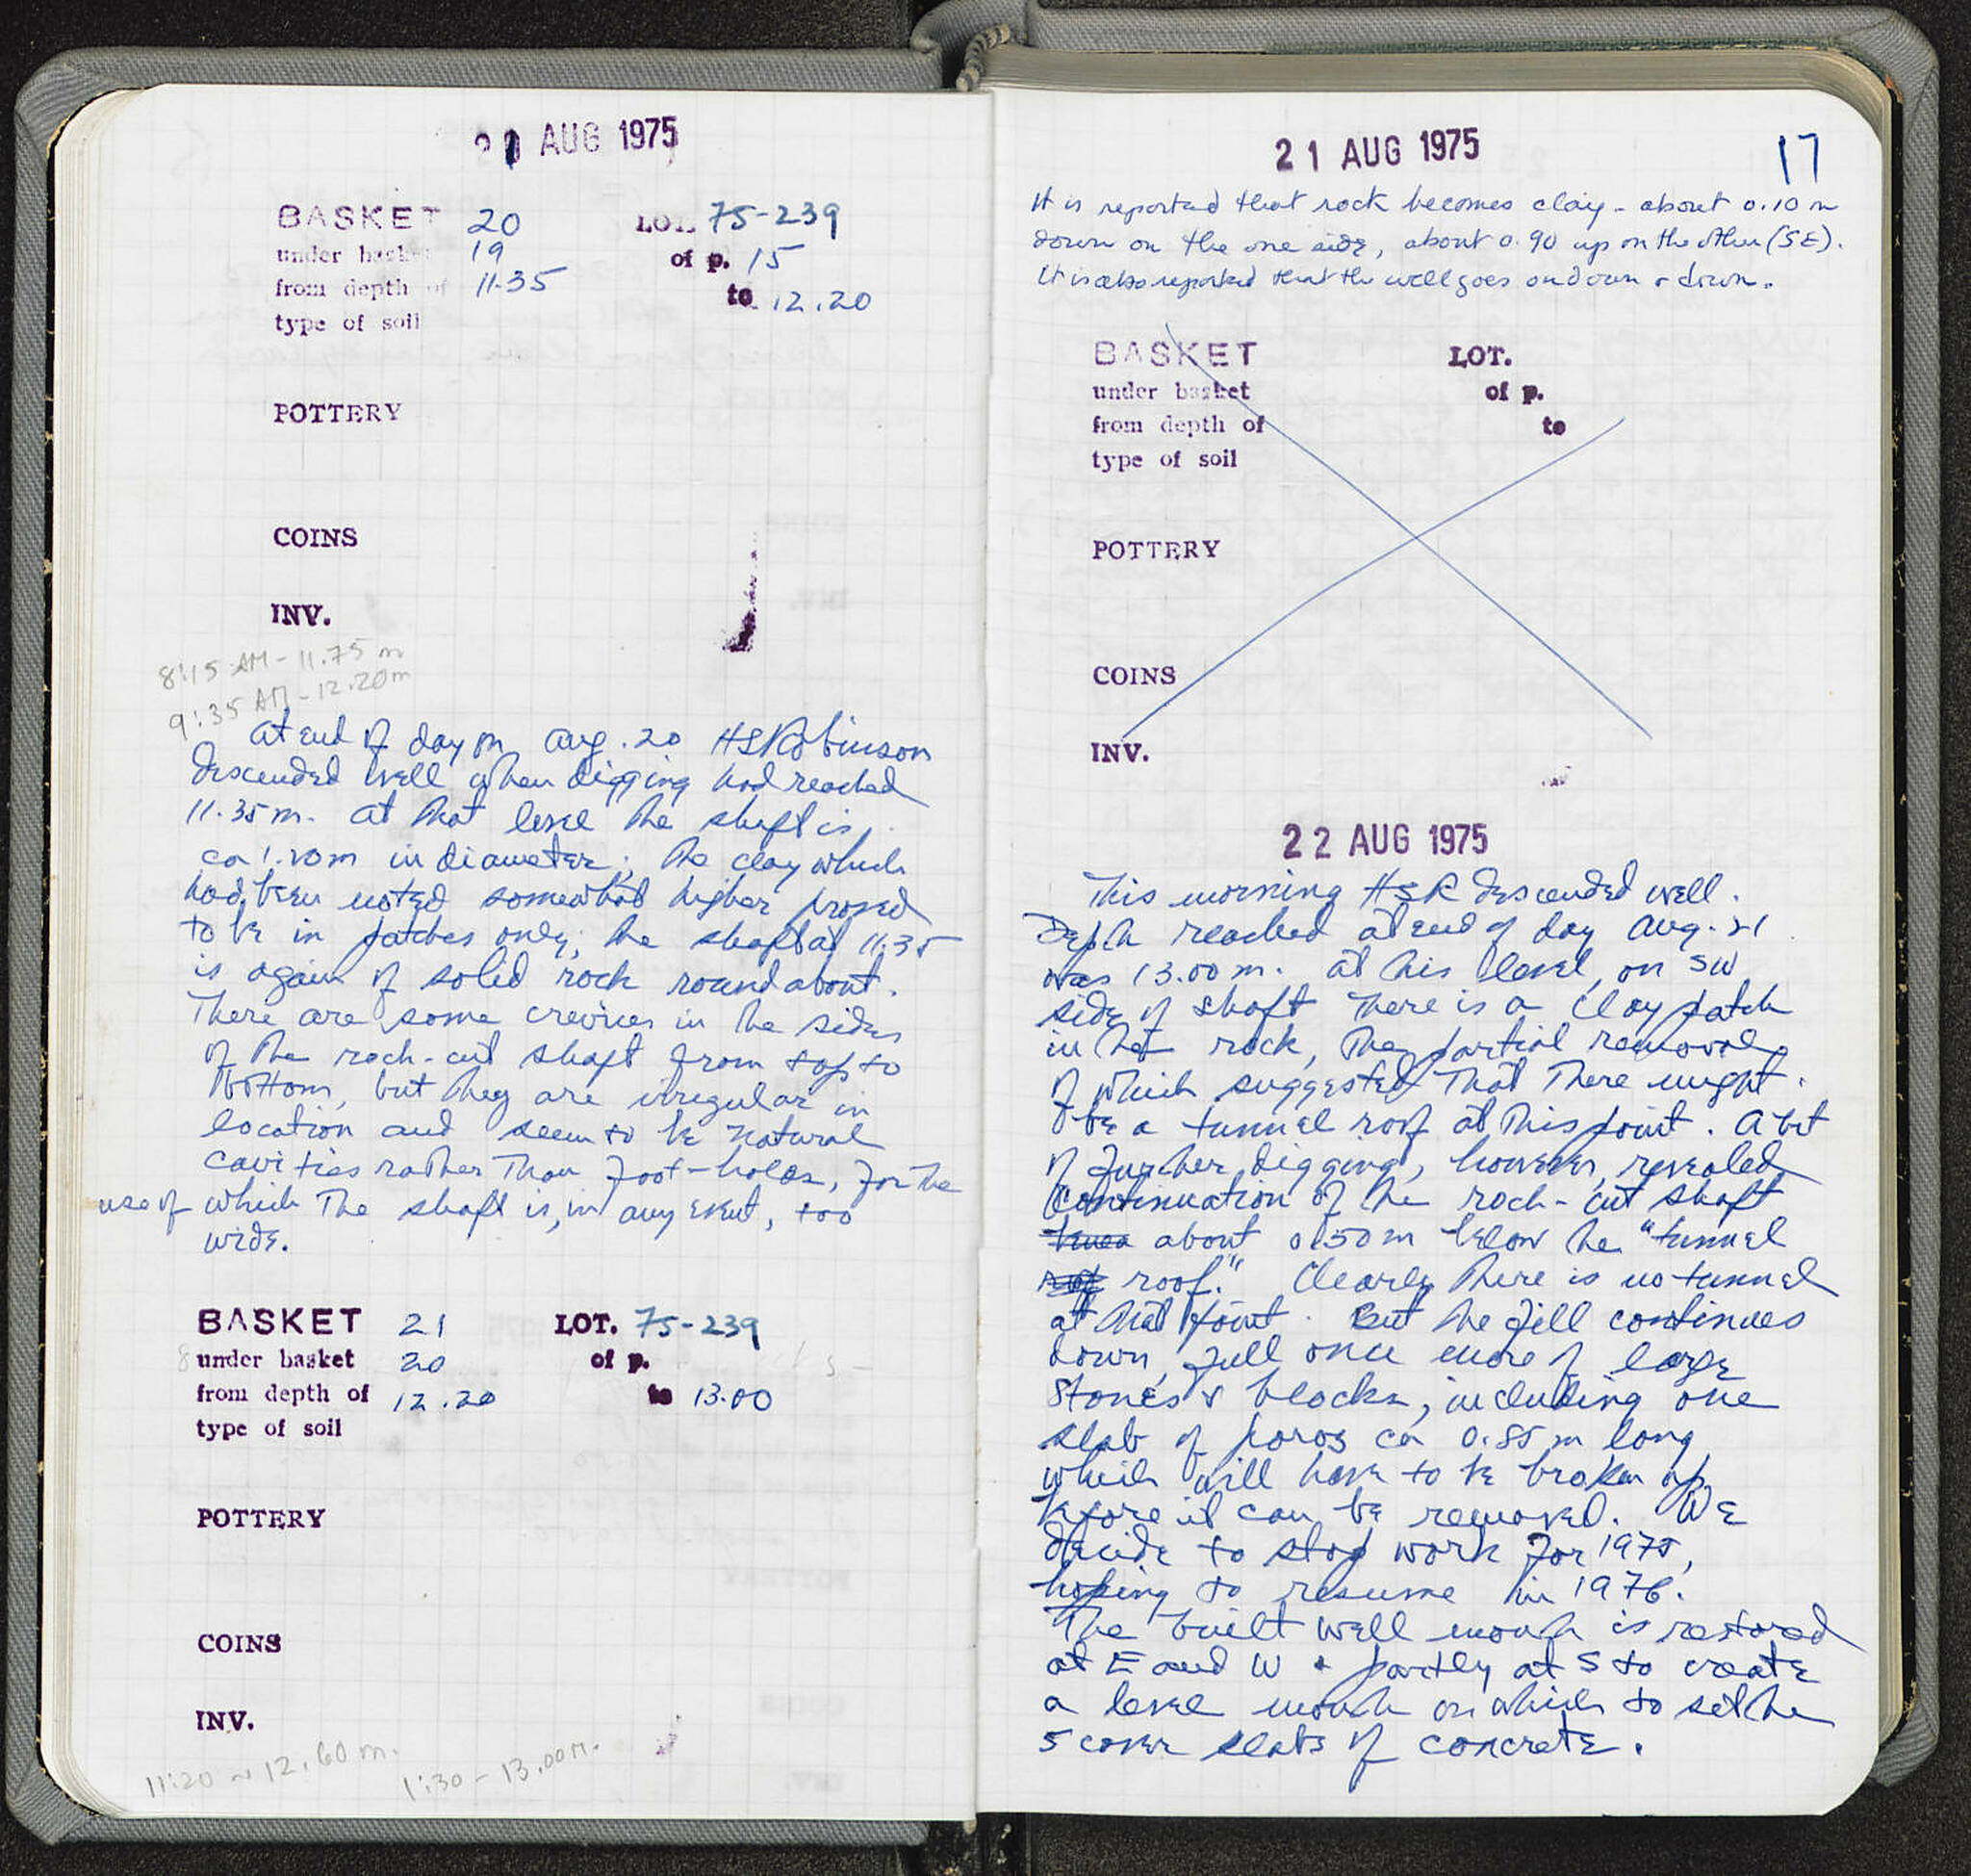 21 AUG 1975
BASKET 20 LOT. 75-239
under basket 19 of p. 15
from depth of 11.35 to 12.20
type of soil
POTTERY
COINS
INV.
8:15 AM - 11.75 m
9:35 AM - 12.20m
At end of day on Aug. 20 HSRobinson
descended well when digging had reached
11.35m. At that level the shaft is
ca 1.10m in diameter; the clay which
had been noted somewhat higher proved
to be in patches only; the shaft at 11.35
is again of solid rock roundabout.
There are some crevices in the sides
of the rock-cut shaft from top to
bottom, but they are irregular in
location and seem to be natural
cavities rather than foot-holes, for the
use of which the shaft is, in any event, too
wide.
BASKET 21 LOT. 75-239
under basket 20 of p.
from depth of 12.20 to 13.00
type of soil
POTTERY
COINS
INV.
11:20 ~ 12.60 m. 1:30 - 13.00m.
21 AUG 1975 17
It is reported that rock becomes clay - about 0.10 m
down on the one side, about 0.90 up on the other (SE).
It is also reported that the well goes on down & down.
BASKET LOT.
under basket of p.
from depth of to
type of soil
POTTERY
COINS
INV.
22 AUG 1975
This morning HSR descended well.
Depth reached at end of day Aug. 21
was 13.00 m. At this level, on SW
side of shaft there is a clay patch
in the rock, the partial removal
of which suggested that there might
be a tunnel roof at this point. A bit
of further digging, however, revealed
continuation of the rock-cut shaft
about 0.50 m below the "tunnel
roof." Clearly there is no tunnel
at that point. But the fill continues
down, full once more of large
stones & blocks, including one
slab of poros ca 0.85 m long
which will have to be broken up
before it can be removed. We
decide to stop work for 1975,
hoping to resume in 1976.
The built well mouth is restored
at E and W & partly at S to create
a level mouth on which to set the
5 cover slabs of concrete.